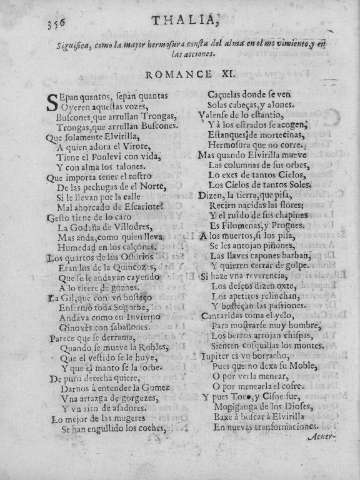 356
THALIA,
Significa, como la mayor hermosura consta del alma en el mo vimiento, y en
las acciones.
ROMANCE XI.
SEpan quantos, sepan quantas
Oyeren aquestas vozes,
Buscones, que arrullan Trongas,
Trongas, que arrullan Buscones.
Que solamente Elvirilla,
A quien adora el Virote,
Tiene el Ponlevi con vida,
Y con alma los talones.
Que importa tener el rostro
De las pechugas de el Norte,
Si le llevan por la calle
Mal ahorcado de Escariote?
Gesto tiene de lo caro
La Godaña de Villodres,
Mas anda, como quien lleva
Humedad en los calçones.
Los quartos de los Ossorios
Eran los de la Quinçozes,
Que se le andavan cayendo
A lo titere de gonzes.
La Gil, que con vn bostezo
Enfermò toda
Andava como en Invierno
Ginovès con sabañones.
Parece que se derrama,
Quando se mueve la Robles,
Que el vestido se le huye,
Y que el manto se la sorbe.
De puro derecha quiere,
Darnos à entender la Gomez
Vna artarga de gorgozes,
Y vn rito de asadores.
Lo mejor de las mugeres
Se han engullido los coches,
Caçuelas donde se ven
Solas cabeças, y alones.
Valense de lo estantio,
Y à los estrados se acogen,
Estanques de mortecinas,
Hermosura que no corre.
Mas quando Elvirilla mueve
Las columnas de sus orbes,
Lo exes de tantos Cielos,
Los Cielos de tantos Soles.
Dizen, la tierra, que pisa,
Recien nacidas las flores;
Y el ruido de sus chapines
Es Filomenas, y Prognes.
A los muertos, si los pisa,
Se les antojan piñones,
Las llaves capones barban,
Y quieren cerrar de golpe.
Si haze vna reverencia,
Los deseos dizen oxte,
Los apetitos relinchan,
Y bostezan las passiones.
Cantaridas toma el yelo,
Para mostrarse muy hombre,
Los berros arrojan chispas,
Sienten cosquillas los montes,
Iupiter es vn borracho,
Pues que no dexa su Moble,
O por verla menear,
O por menearla el cofre.
Y pues Toro, y Cisne fue,
Mogiganga de los Dioses,
Baxe à buscar à Elvirilla
En nuevas transformaciones.
Acner-